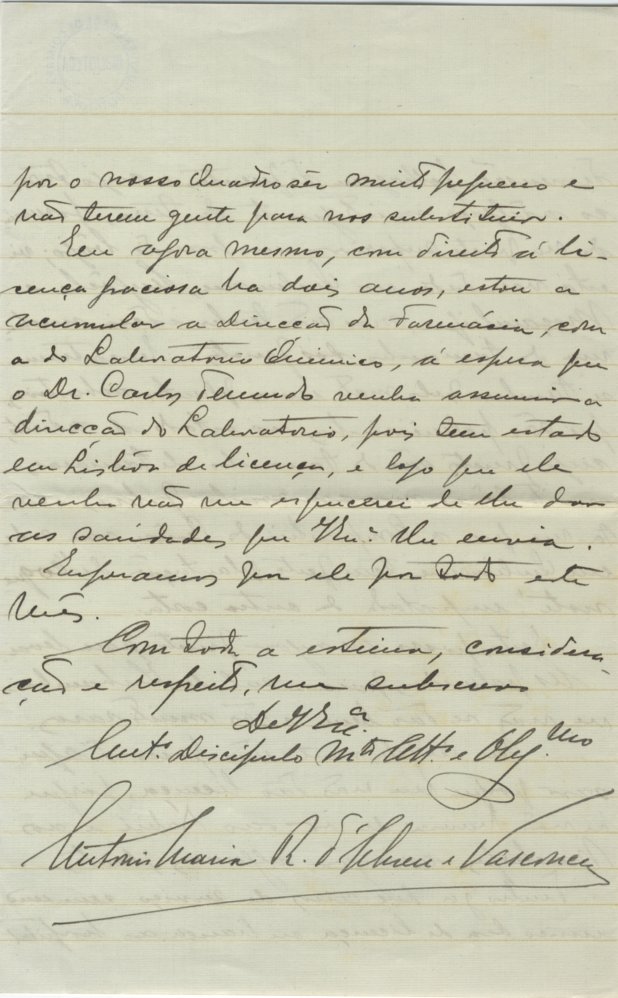 por o nosso Quadro sêr muito pequeno e
não terem gente para nos substituir.
Eu agora mesmo, com direito á li-
cença graciosa ha dois anos, estou a
acumular a Direcção da Farmácia, com
a do Laboratorio Quimico, á espera que
o Dr. Carlos venha assumir a
direcção do Laboratorio, pois tem estado
em Lisbôa de licença, e logo que ele
venha não me esquecerei de lhe dar
as saudades que V. Ex.ª lhe envia.
Esperamos por ele por todo este
mês.
Com toda a estima, considera-
ção e respeito, me subscrevo
De V. Ex.ª
Discipulo m.to Att.º e Obg.mo
Antonio Maria R. d'Abreu e Vasconcelos